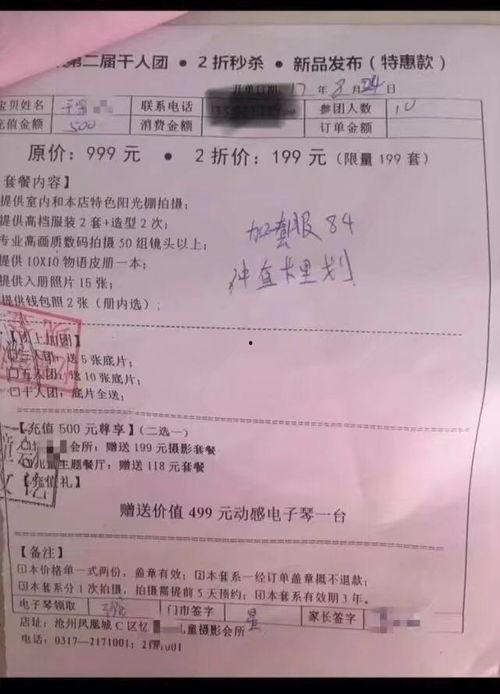 第二届千人团 • 2折秒杀 • 新品发布（特惠款）
开单日期：17 年 8 月 24 日
宝贝姓名 联系电话 参团人数 10
充值金额 500 消费金额 订单金额
原价：999 元 • 2 折价：199 元（限量 199 套）
套餐内容】
提供室内和本店特色阳光棚拍摄；
提供高档服装 2 套+造型 2 次；
专业高画质数码拍摄 50 组镜头以上；
提供 10X10 物语皮册一本；
提供入册照片 15 张；
提供钱包照 2 张（册内选）；
加套服 84
冲值卡里划
上加团】
口三人团：送 5 张底片；
口五人团：送 10 张底片；
口十人团：底片全送；
【充值 500 元尊享】（二选一）
会所：赠送 199 元摄影套餐
儿童主题餐厅：赠送 118 元套餐
【充值礼】
赠送价值 499 元动感电子琴一台
【备注】
①本价格单一式两份，盖章有效；②本套系一经订单盖章概不退款；
③本套系分 1 次拍摄，拍摄需提前 5 天预约；④本套系有效期 3 年。
电子琴领取 门市签字 家长签字
店址：沧州凤凰城 C 区忆 儿童摄影会所
电话：0317-2171001；